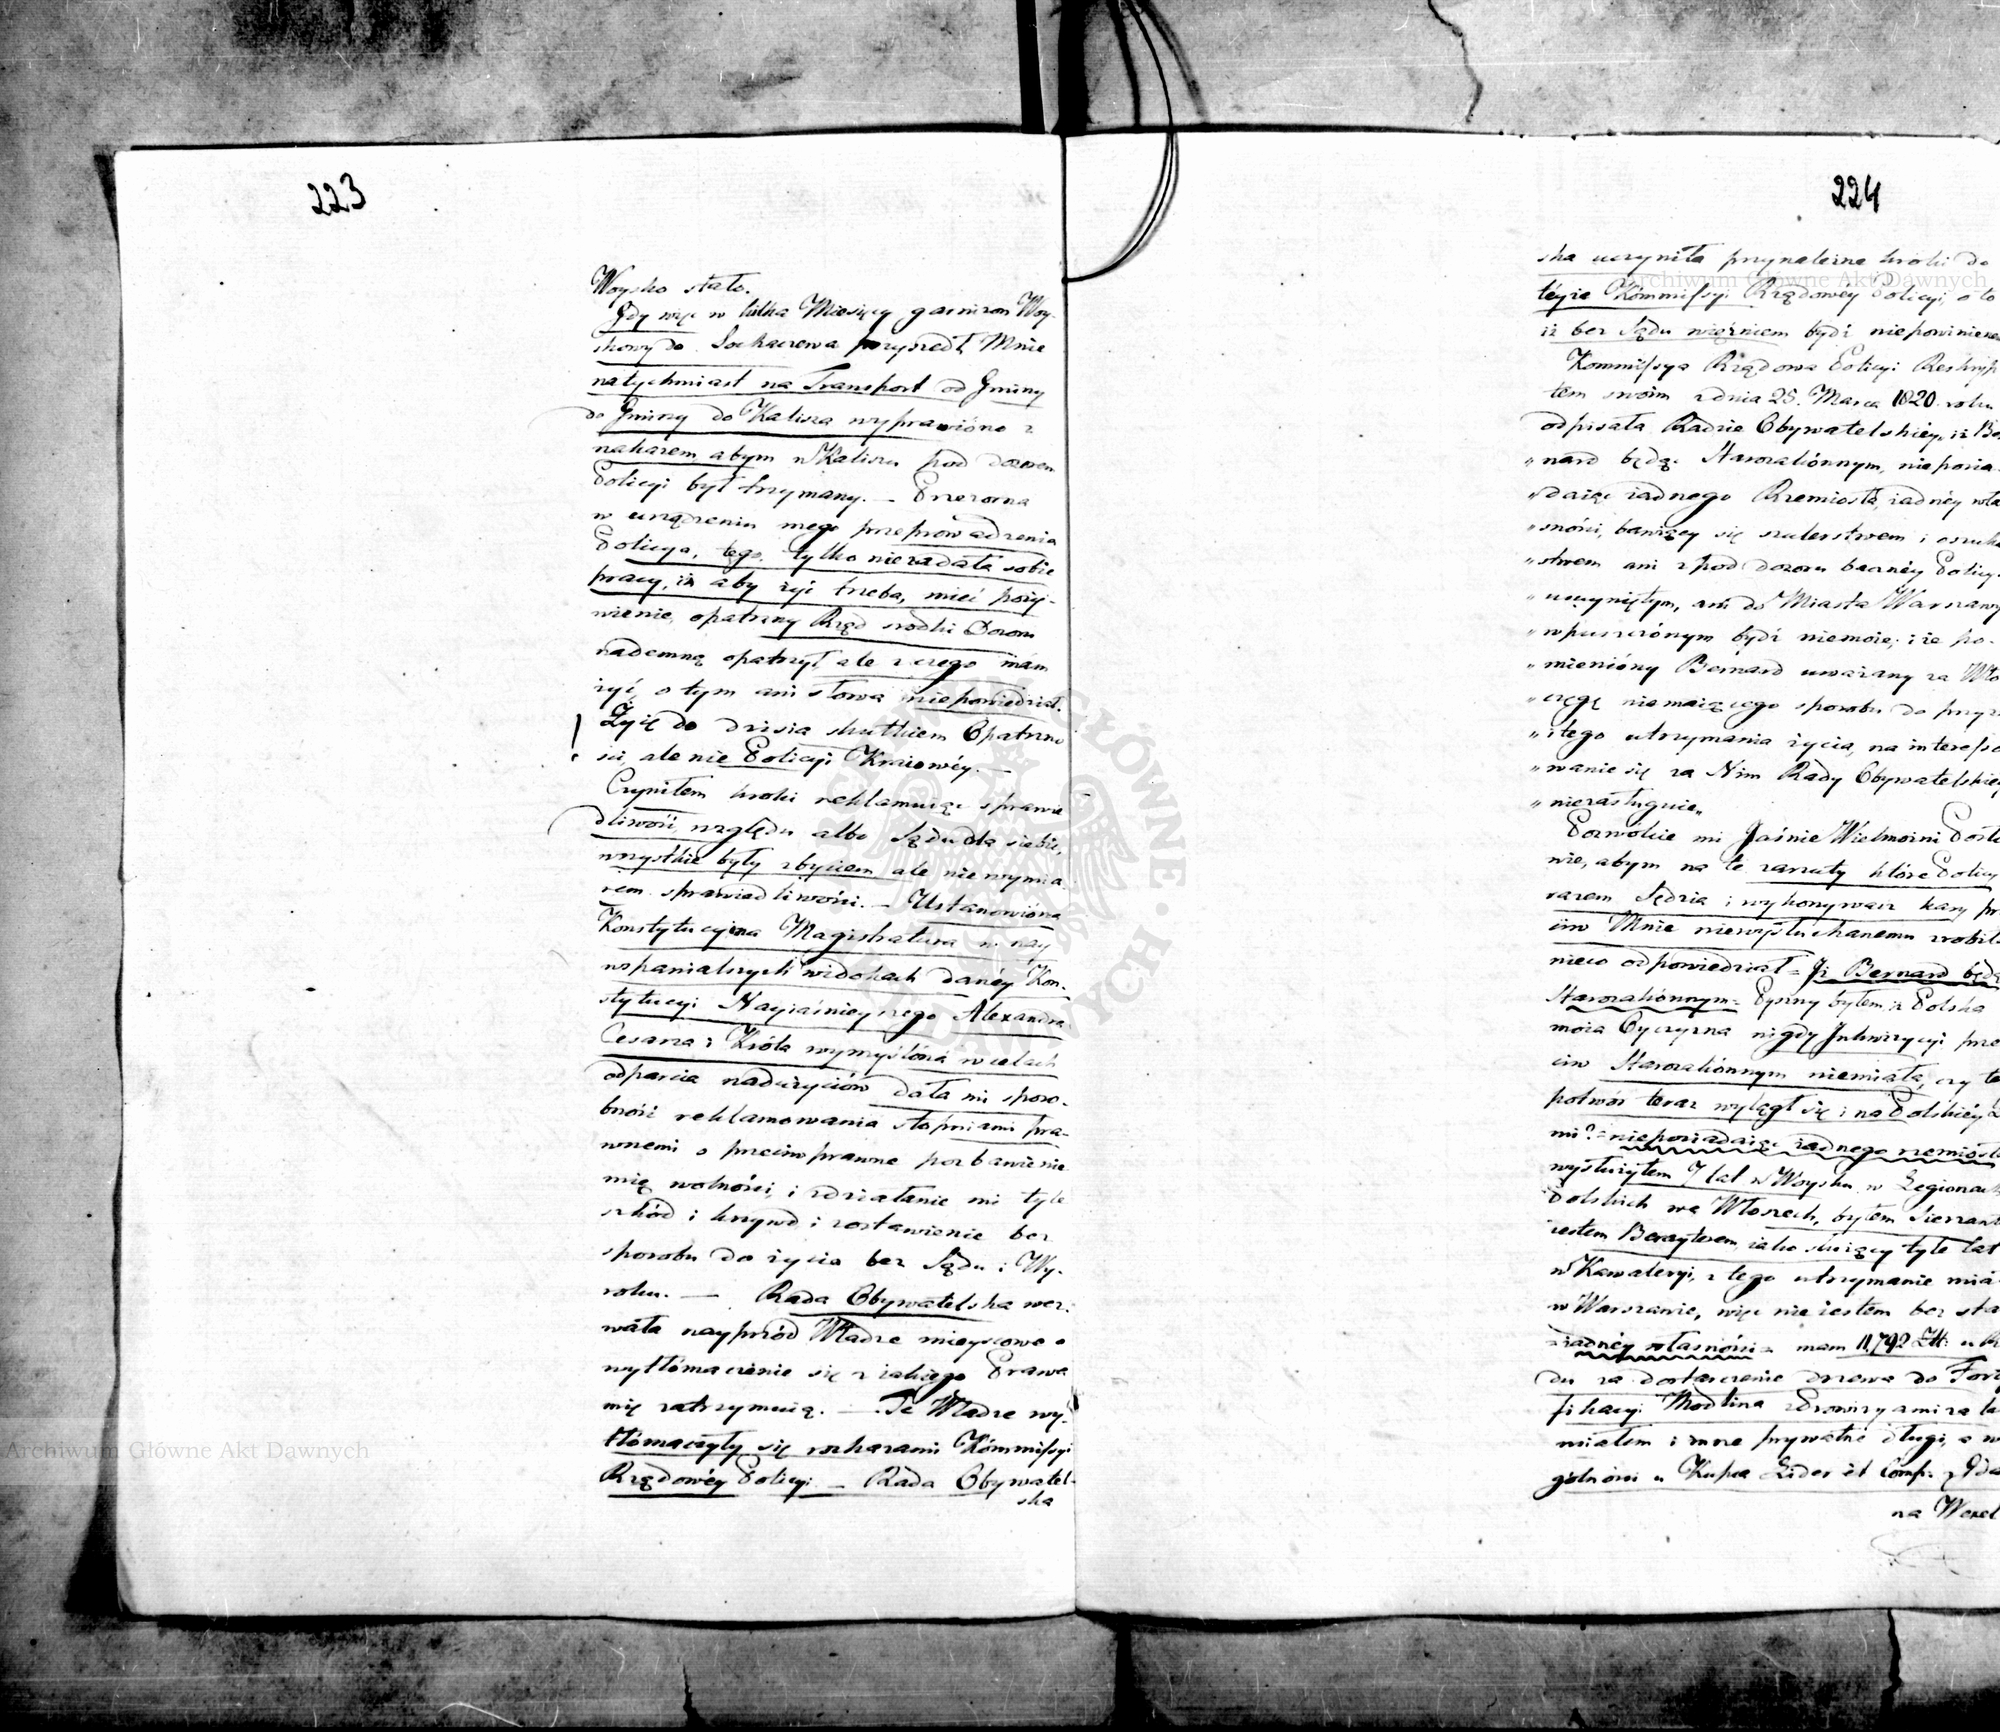 223
Woysko stało.
Gdy więc w kilka Miesięcy garnizon Woy-
skowy do Sochaczewa przyszedł, Mnie
natychmiast na Transport od Gminy
do Gminy do Kalisza wyprawióno z
nakazem abym w Kaliszu pod dozorem
Policyi był trzymany. — Przezorna
w urządzeniu mego przeprowadzenia
Policya, tego tylko niezadała sobie
pracy, iż aby żyć trzeba, mieć poży-
wienie, opatrzny Rząd srodki Dozoru
nademną opatrzył ale z czego mam
żyć, o tym ani słowa niepowiedział.
Żyię do dzisia skutkiem Opatrzno
ści, ale nie Policyi Kraiowéy. —
Czyniłem kroki reklamuiąc sprawie
dliwości, względu albo Sądu dla siebie,
wszystkie były zbyciem ale nie wymia
rem sprawiedliwości. — Ustanowióna
Konstytucyina Magistratura w nay
wspanialszych widokach danéy Kon-
stytucyi Nayiaśnieyszego Alexandra
Cesarza i Króla wymyślóna w celach
odparcia nadużyciów dała mi sposo-
bność reklamowania stopniami pra-
wnemi o przeciwprawne pozbawienie
mię wolności, i zdziałanie mi tyle
szkód i krzywd i zostawienie bez
sposobu do życia bez Sądu i Wy-
roku. — Rada Obywatelska wez-
wała nayprzód Władze mieyscowe o
wytłómaczenie się z iakiego Prawa
mię zatrzymuią. — Te Władze wy-
tłómaczyły się rozkazami Kómmissyi
Rządowéy Policyi — Rada Obywatel-
ska
224
ska uczyniła przynależne kroki do
téyże Kómmissyi Rządowéy Policyi o to
iż bez Sądu więźniem bydź niepowinienem
Kommissya Rządowa Policyi Reskryp
tem swóim z dnia 25. Marca 1820. roku
odpisała Radzie Obywatelskiéy „iż Ber
„nard będąc Starozakónnym, nieposia-
„daiąc żadnego Rzemiosła, żadnéy wła
„sności, bawiący się szulerstwem i oszuka
„stwem ani z pod dozoru bacznéy Policyi
„usuniętym, ani do Miasta Warszawy
„wpuszczónym bydź niemoże; i że po-
„mienióny Bernard uważany za Włó
„częgę niemaiącego sposobu do przyz
„oitego utrzymania życia, na interesso
„wanie się za Nim Rady Obywatelskiey
„niezasługuie„
Pozwólcie mi Jaśnie Wielmożni Posło
wie, abym na te zarzuty które Policya
razem Sędzia i wykonywacz kary prze
ciw Mnie niewysłuchanemu zrobiła
nieco odpowiedział = Iż Bernard będąc
Starozakónnym = Pyszny byłem iż Polska
moia Oyczyzna nigdy Inkwizycyi prze
ciw Starozakónnym niemiała, czy ten
potwór teraz wylągł się i na Polskiéy Zie
mi? = nieposiadaiąc żadnego rzemiosła
wysłużyłem 7 lat w Woysku w Legionach
Polskich we Włoszech, byłem Sierżantem
iestem Bereyterem iako służący tyle lat
w Kawaleryi, z tego utrzymanie miałem
w Warszawie, więc nie iestem bez sta
= żadnéy własności = mam 11,792 Zł: u Rzą
du za dostarczenie drzewa do Forty
fikacyi Modlina
miałem i inne prywatne długi, a w
gólności u Kupca Lider et Comp: z Gda
na Wexel